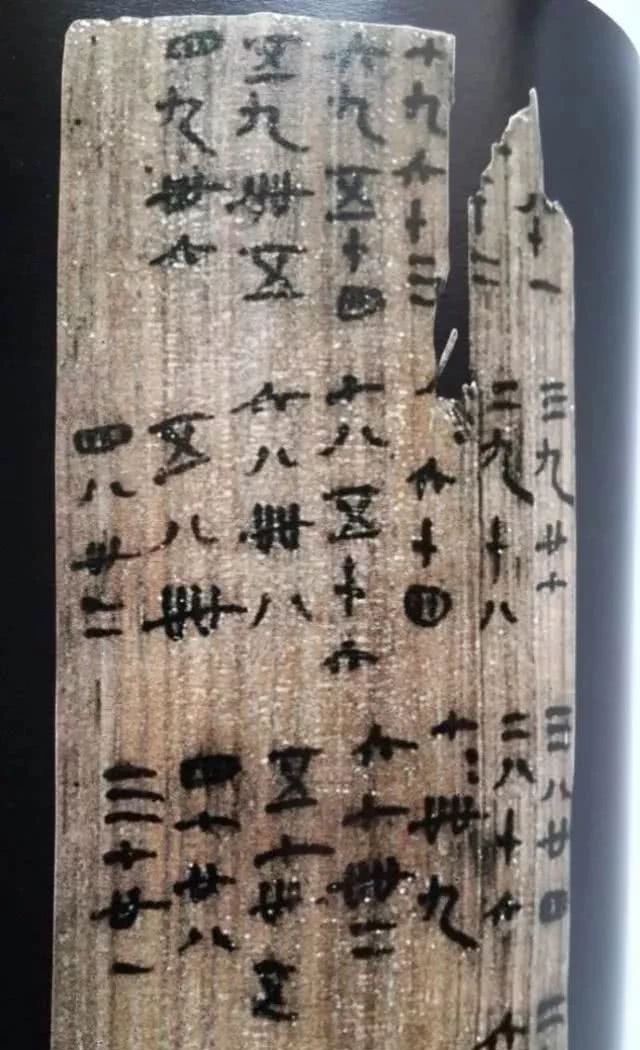 十一
二
七九六十三
六九五十四
五九卌五
四九卅六
三九廿七
二九十八
六十四
七八五十六
六八卌八
五八卌
四八卅二
三八廿四
二八十六
七〻卌九
六七卌二
五七卅五
四七廿八
三七廿一
二
六